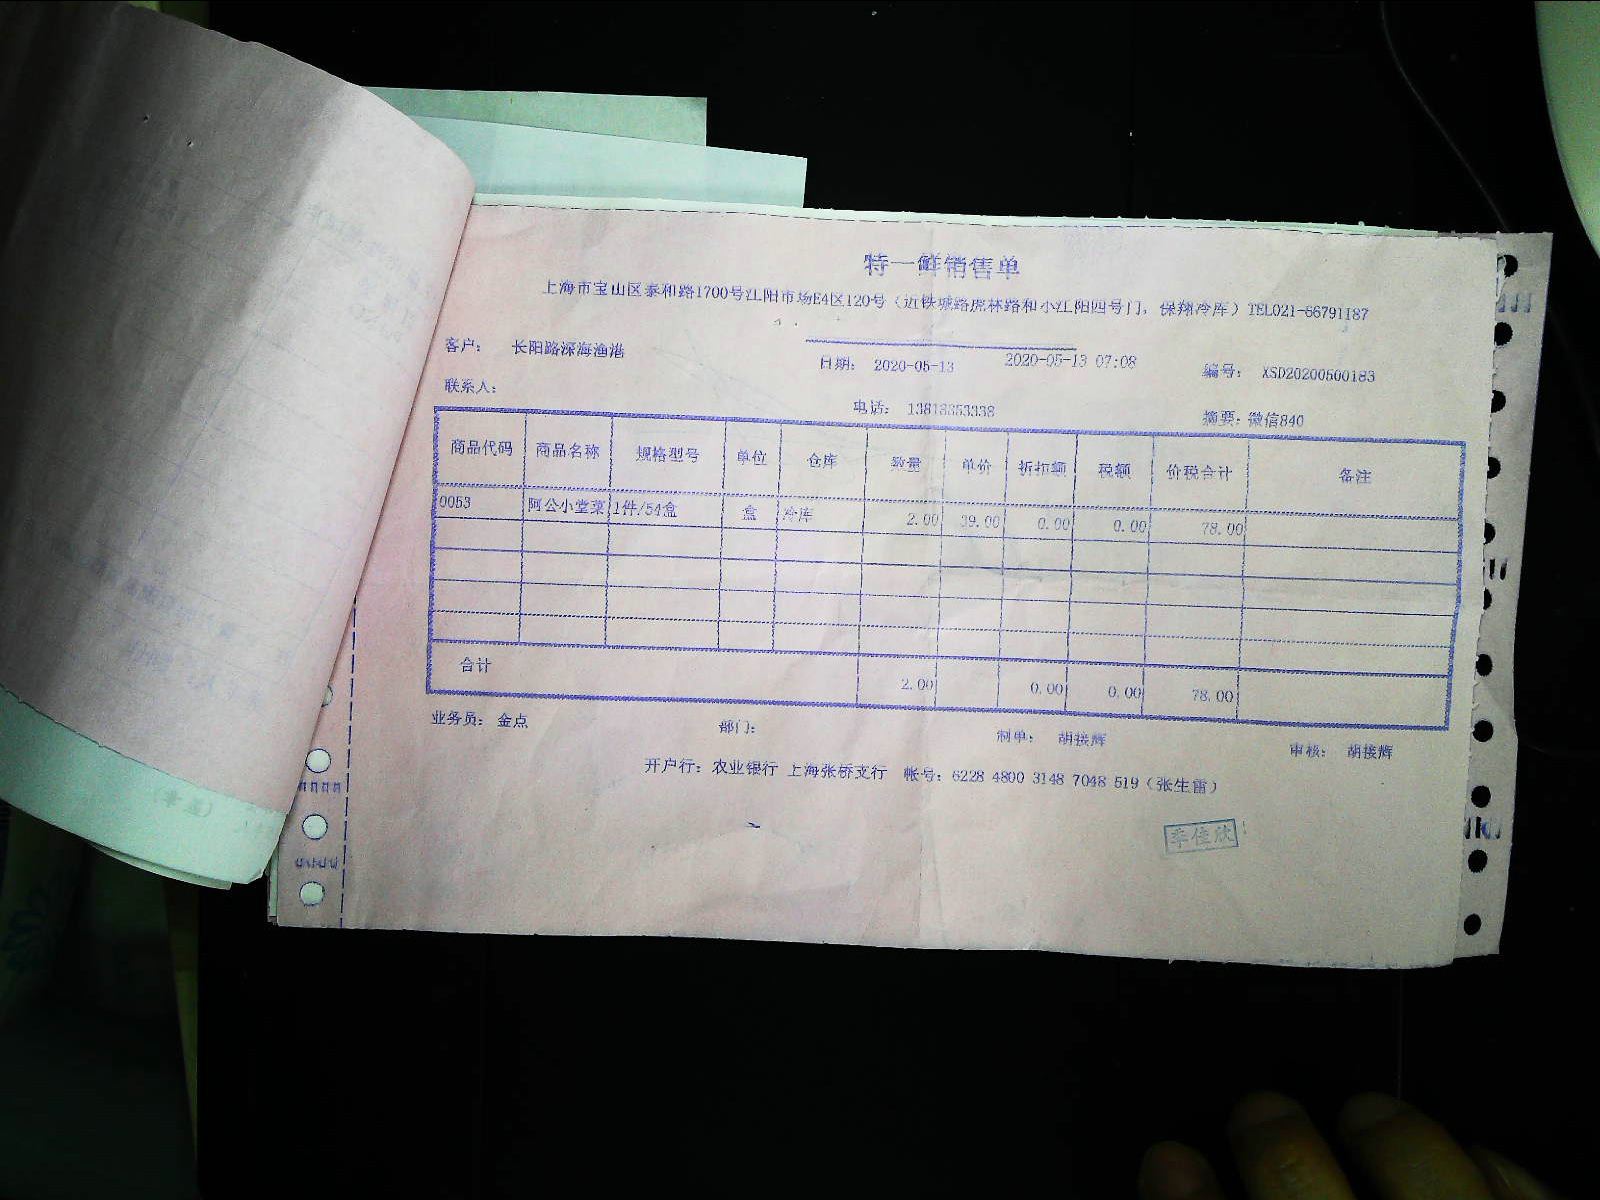 特一鲜销售单
上海市宝山区泰和路1700号江阳市场E4区120号（近铁城路虎林路和小江阳四号门，保翔冷库）TEL021-66791187
客户： 长阳路深海渔港 日期： 2020-05-13 2020-05-13 07:08 编号： XSD20200500183
联系人： 电话： 13818353338 摘要：微信840
商品代码 商品名称 规格型号 单位 仓库 数量 单价 折扣额 税额 价税合计 备注
0053 阿公小堂菜 1件/54盒 盒 冷库 2.00 39.00 0.00 0.00 78.00
合计 2.00 0.00 0.00 78.00
业务员： 金点 部门： 制单： 胡接辉 审核： 胡接辉
开户行：农业银行 上海张桥支行 帐号：6228 4800 3148 7048 519（张生雷）
李佳欣